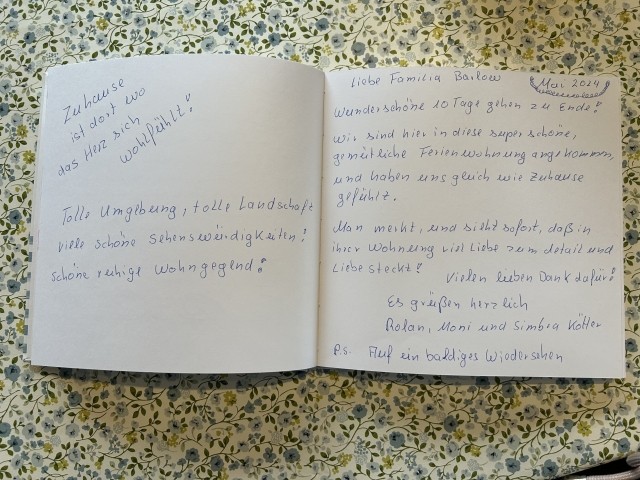 Zuhause
ist dort wo
das Herz sich
wohlfühlt!
Tolle Umgebung, tolle Landschaft
viele schöne Sehenswürdigkeiten!
schöne ruhige Wohngegend!
Liebe Familia Barlow
Mai 2024
Wunderschöne 10 Tage gehen zu Ende!
Wir sind hier in diese super schöne,
gemütliche Ferienwohnung angekommen,
und haben uns gleich wie Zuhause
gefühlt.
Man merkt, und sieht sofort, daß in
ihrer Wohnung viel Liebe zum detail und
Liebe steckt!
Vielen lieben Dank dafür!
Es grüßen herzlich
Rolan, Moni und Simbra Kötter
P.s. Auf ein baldiges Wiedersehen